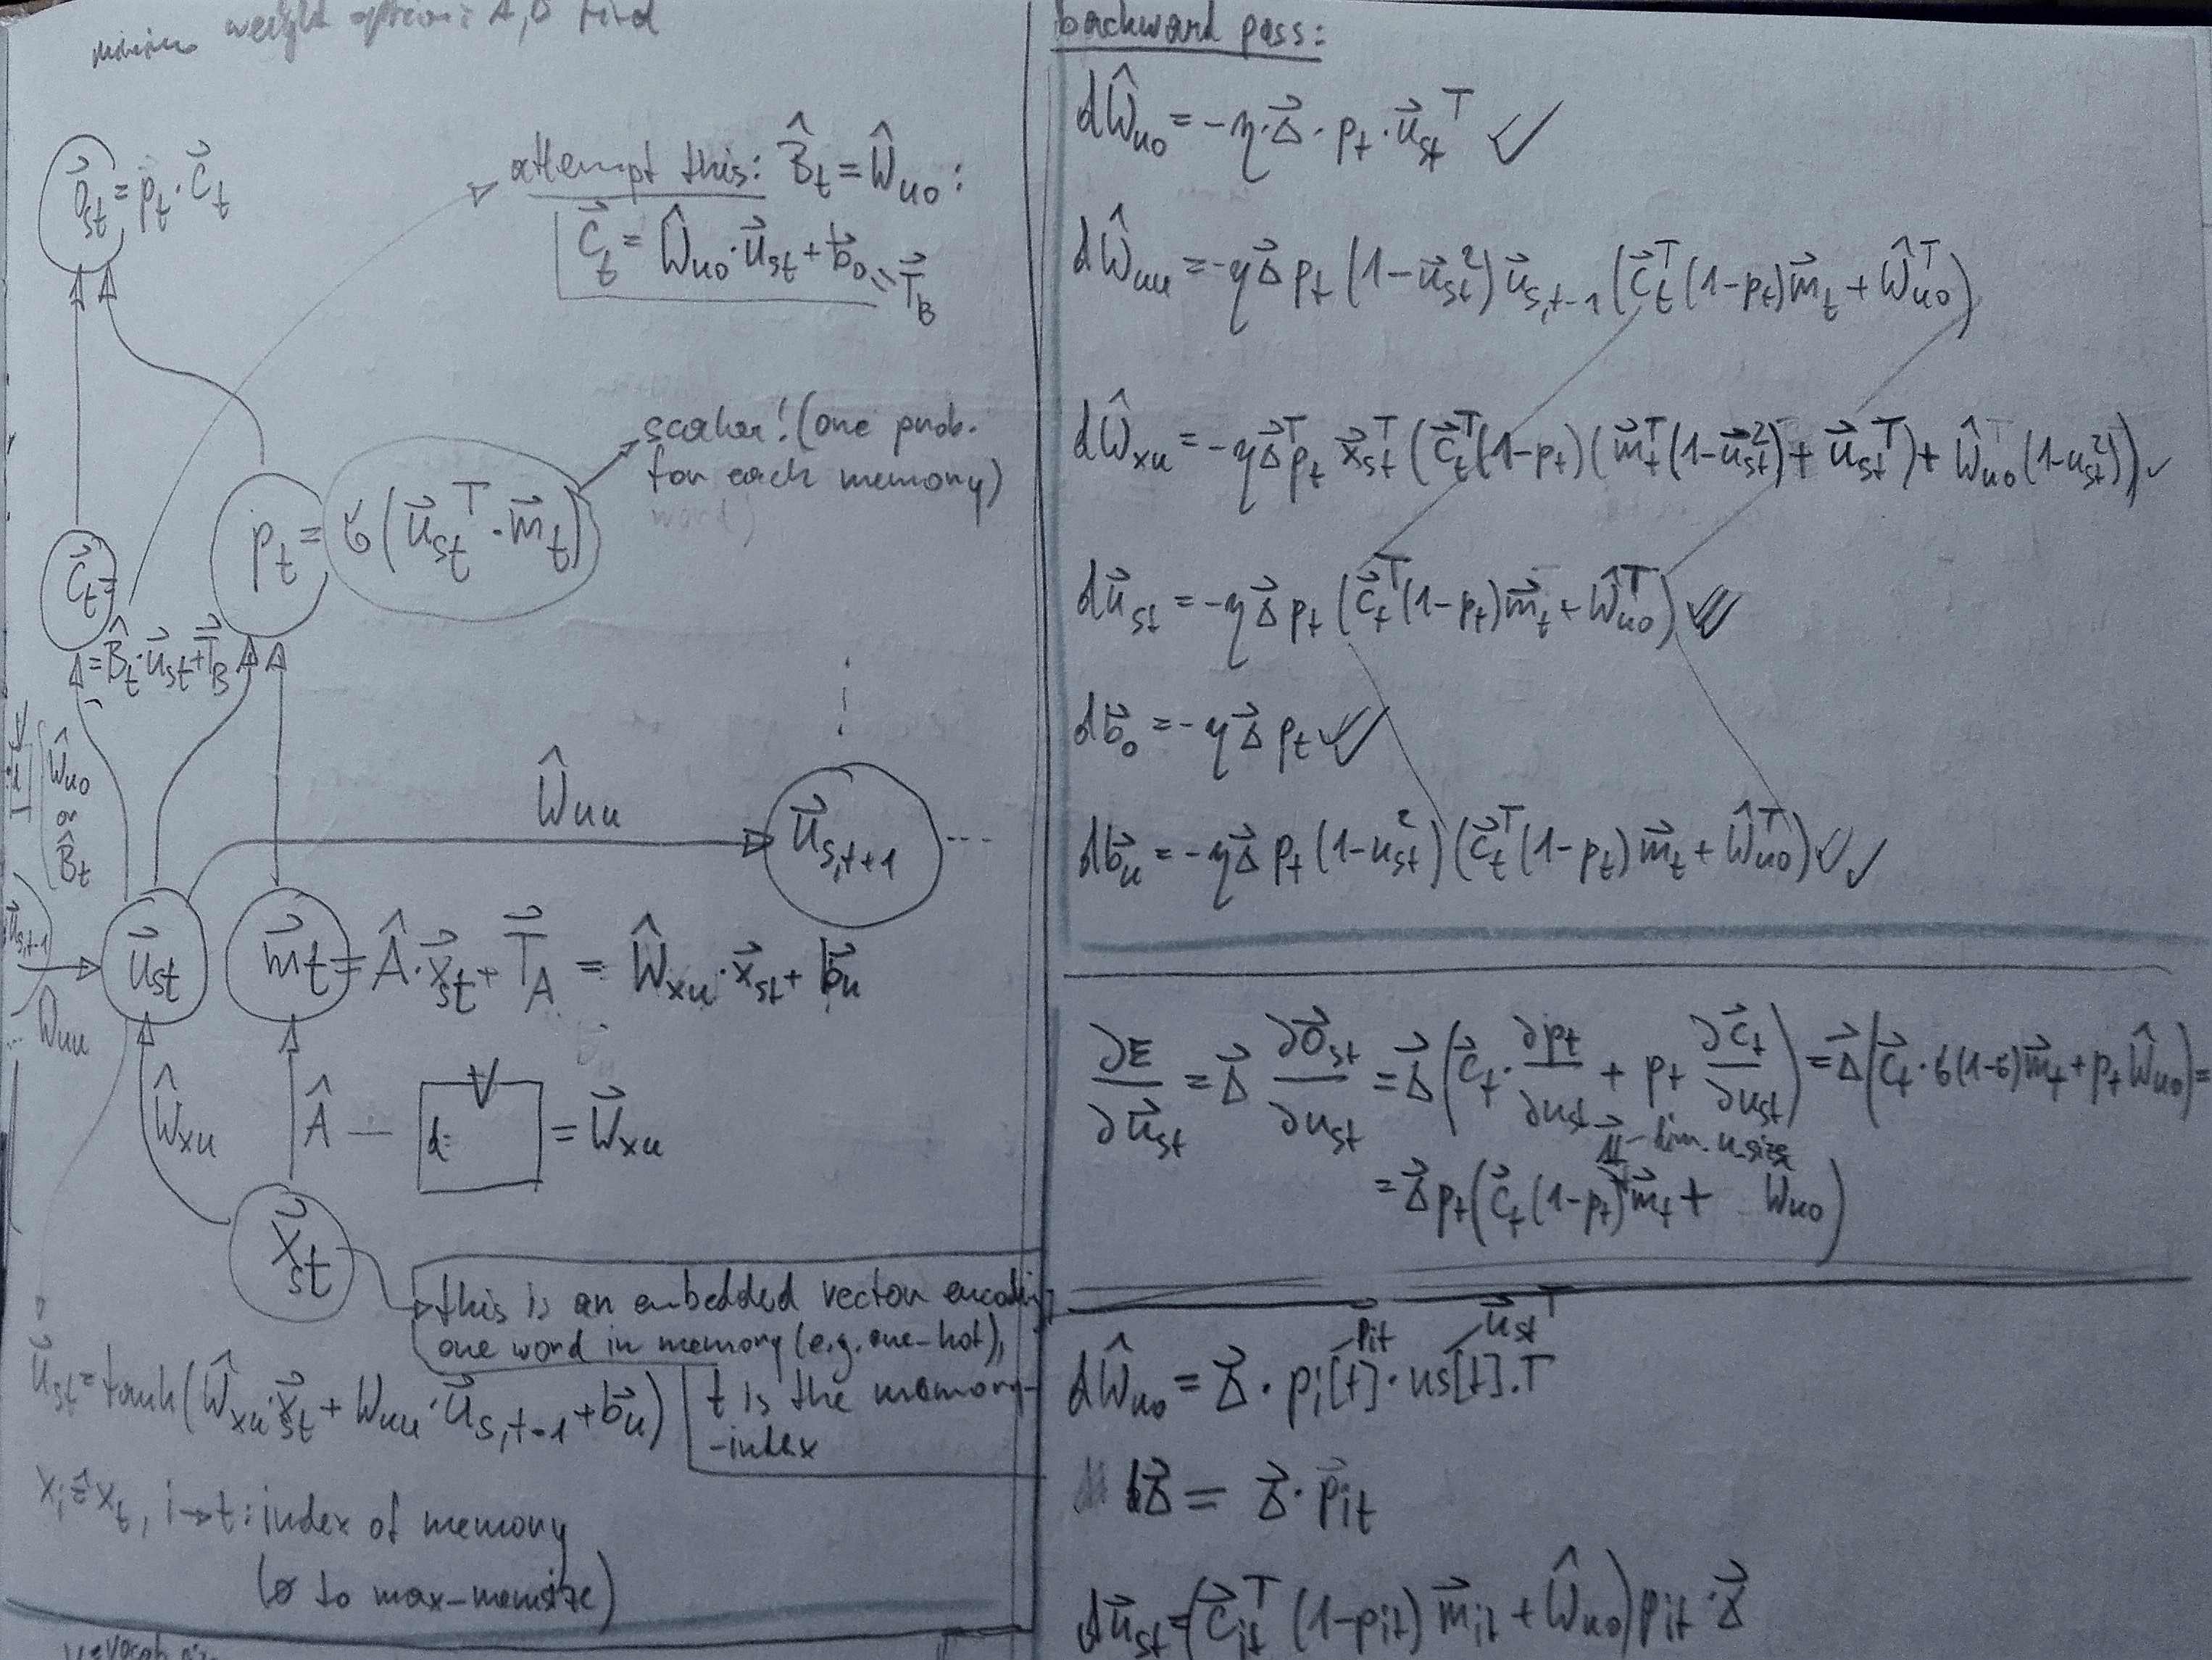 weight option: A, B
o⃗_st = p_t · c⃗_t
attempt this: B̂_t = Ŵ_uo:
c⃗_t = Ŵ_uo · u⃗_st + b⃗_o = T⃗_B
scalar! (one prob.
for each memory)
word)
p_t = σ(u⃗_st^T · m⃗_t)
c⃗_t =
= B̂_t · u⃗_st + T⃗_B
Ŵ_uo
or
B̂_t
Ŵ_uu
u⃗_s,t+1 ...
u⃗_s,t-1
u⃗_st
m⃗_t = Â · x⃗_st + T⃗_A = Ŵ_xu · x⃗_st + b⃗_u
Ŵ_uu
Ŵ_xu
Â — d= V = W⃗_xu
x⃗_st
this is an embedded vector encoding
one word in memory (e.g. one-hot),
t is the memory-
-index
u⃗_st = tanh(Ŵ_xu · x⃗_st + W_uu · u⃗_s,t-1 + b⃗_u)
x_i ≙ x_t, i → t: index of memory
(0 to max-memsize)
backward pass:
dŴ_uo = -η · Δ⃗ · p_t · u⃗_st^T ✓
dŴ_uu = -η Δ⃗ p_t (1 - u⃗_st^2) u⃗_s,t-1 (c⃗_t^T (1-p_t) m⃗_t + Ŵ_uo^T)
dŴ_xu = -η Δ⃗^T p_t x⃗_st^T (c⃗_t^T (1-p_t) (m⃗_t^T (1-u⃗_st^2) + u⃗_st^T) + Ŵ_uo^T (1-u_st^2)) ✓
du⃗_st = -η Δ⃗ p_t (c⃗_t^T (1-p_t) m⃗_t + Ŵ_uo^T) ✓
db⃗_o = -η Δ⃗ p_t ✓
db⃗_u = -η Δ⃗ p_t (1-u_st^2) (c⃗_t^T (1-p_t) m⃗_t + Ŵ_uo^T) ✓✓
∂E/∂u⃗_st = Δ⃗ ∂o⃗_st/∂u_st = Δ⃗ (c⃗_t · ∂p_t/∂u_st + p_t ∂c⃗_t/∂u_st) = Δ⃗ (c⃗_t · σ(1-σ) m⃗_t + p_t Ŵ_uo) =
1⃗ - dim. u_size
= Δ⃗ p_t (c⃗_t (1-p_t) m⃗_t + W_uo)
p⃗_it u⃗_st^T
dŴ_uo = Δ⃗ · pi[t] · us[t].T
dΔ⃗ = Δ⃗ · p⃗_it
du⃗_st = (c⃗_it^T (1-p_it) m⃗_it + Ŵ_uo) p_it · Δ⃗